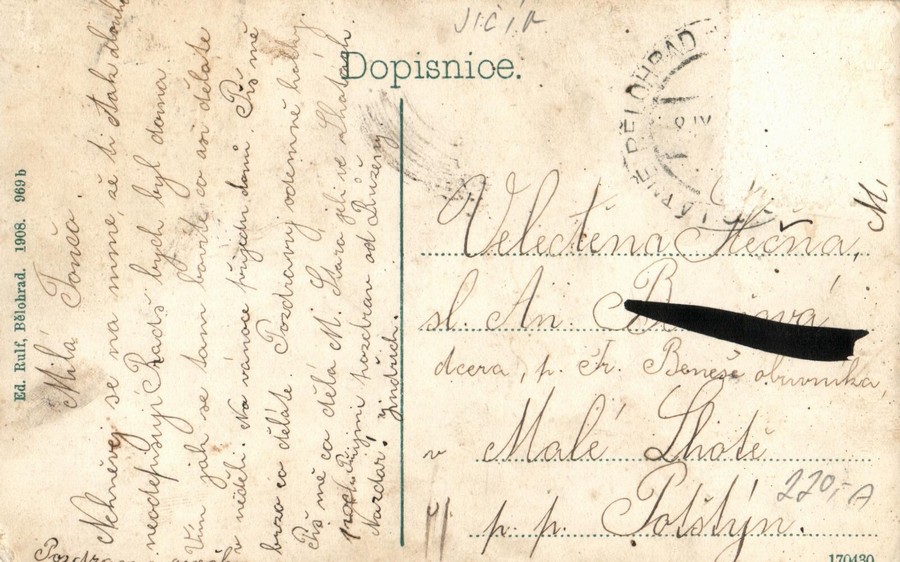 JIČÍN
Dopisnice.
LÁZNĚ BĚLOHRAD
Ed. Rulf, Bělohrad. 1908. 969 b
Milá Tončo.
Nehněvej se na mne, že ti tak dlouho
neodepisuji Radš bych byl doma
Vím jak se tam bavíte co asi děláte
v neděli. Na vánoce přijedu domů. Piš mě
brzo co děláte. Pozdravuj odemně holky
Piš mě co dělá M. Stara jeli ve Lhotách
Přijmi pozdrav od Růženy
Nazdar! Jindřich.
Velectěna Slečna,
sl. An.
dcera, p. Fr. Beneše obuvníka,
v Malé Lhotě
p. p. Potštýn.
M,
220,- A
170430